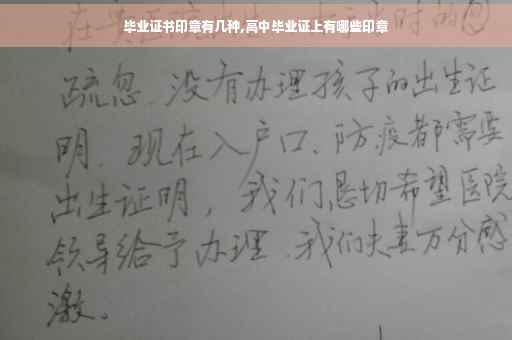 毕业证书印章有几种,高中毕业证上有哪些印章
疏忽、没有办理孩子的出生证
明、现在入户口、防疫都需要
出生证明，我们恳切希望医院
领导给予办理、我们夫妻万分感
激。